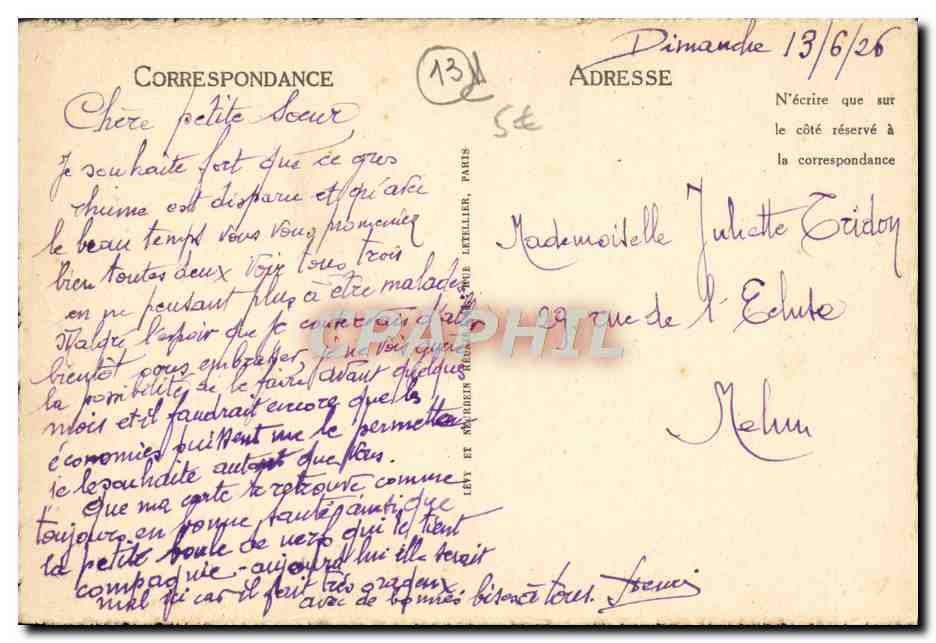 Dimanche 13/6/26
CORRESPONDANCE
ADRESSE
13
5€
N'écrire que sur
le côté réservé à
la correspondance
Chère petite Soeur,
Je souhaite fort que ce gros
rhume est disparu et qu'avec
le beau temps vous vous promeniez
bien toutes deux voir tous trois
en ne pensant plus à être malades
Malgré l'espoir que je conservais d'aller
bientôt vous embrasser, je ne vois guère
la possibilité de le faire avant quelque
mois et il faudrait encore que les
économies puissent me le permettre
je le souhaite autant que Vous.
Que ma carte te retrouve comme
toujours en bonne santé ainsi que
la petite boule de nerfs qui te tient
compagnie - aujourd'hui elle serait
mal ici car il fait très orageux
avec de bonnes bises à tous. Henri
LÉVY ET NEURDEIN RÉUNIS, RUE LETELLIER, PARIS
Mademoiselle Juliette Tridon
29 rue de l'Ecluse
Melun
CPAPHIL